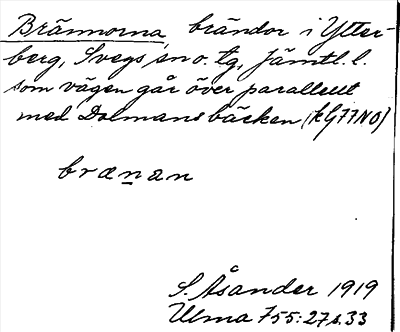 Brännorna, brändor i Ytter-
berg, Svegs sn o. tg, Jämtl. l.
som vägen går över parallellt
med Dalmansbäcken (kG77NO)
brænan
S. Åsander 1919
Ulma 755:27 s.33